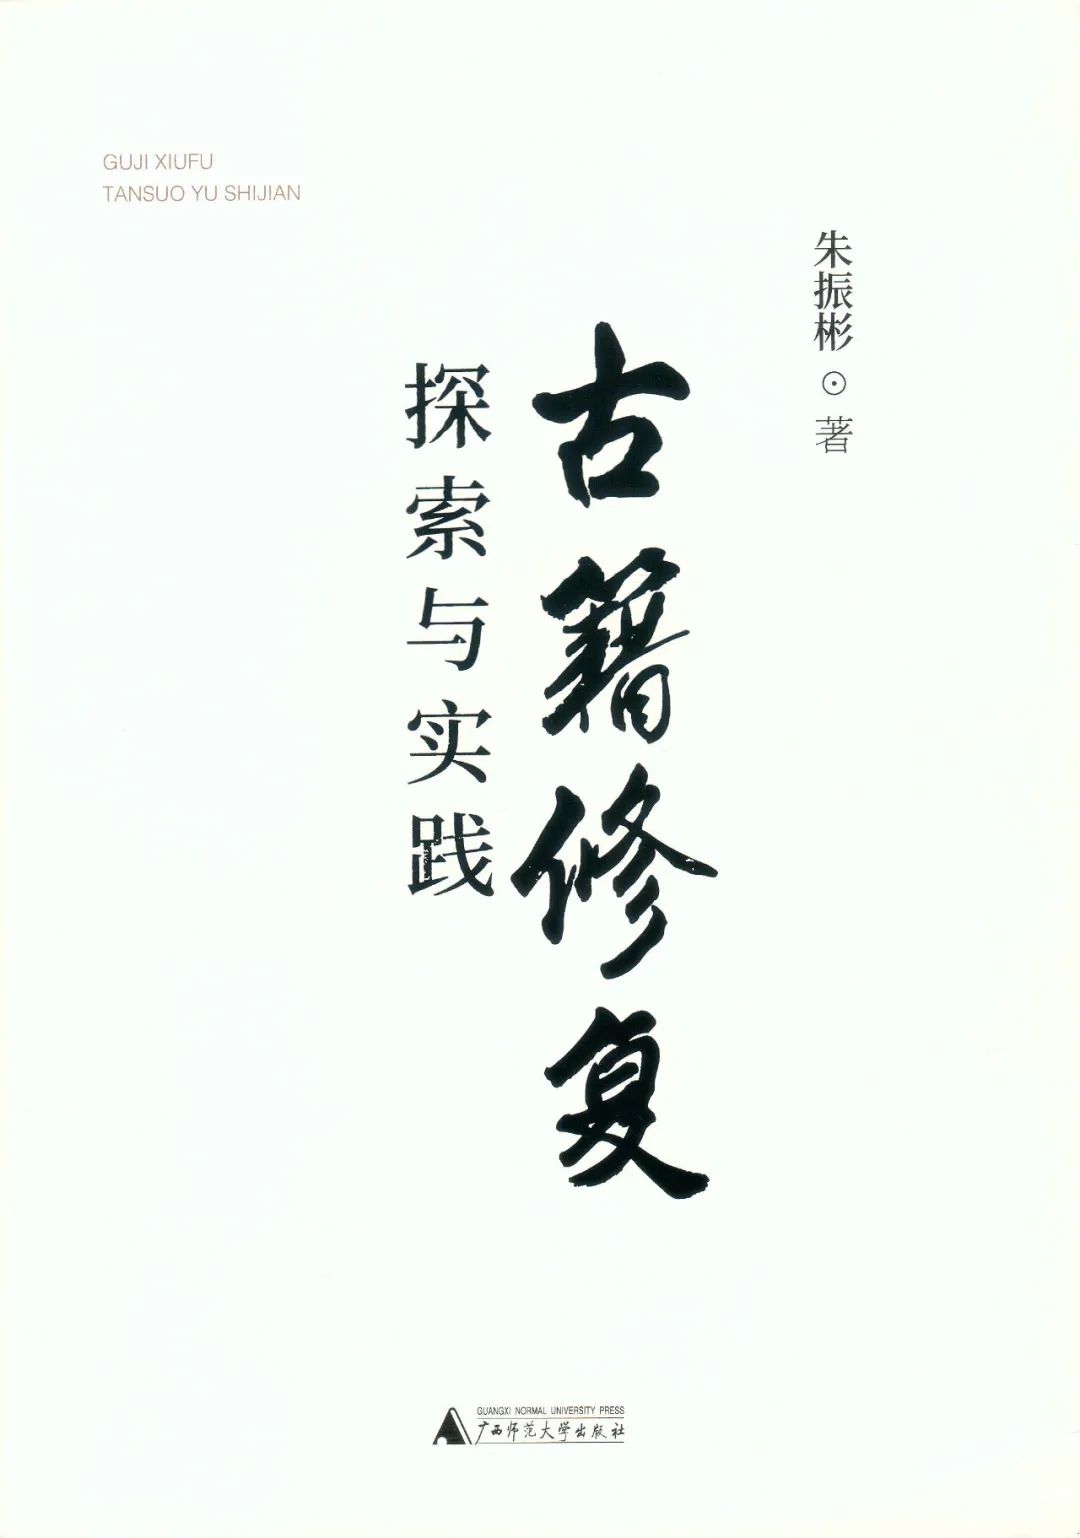 GUJI XIUFU
TANSUO YU SHIJIAN
朱振彬⊙著
古籍修复
探索与实践
GUANGXI NORMAL UNIVERSITY PRESS
广西师范大学出版社